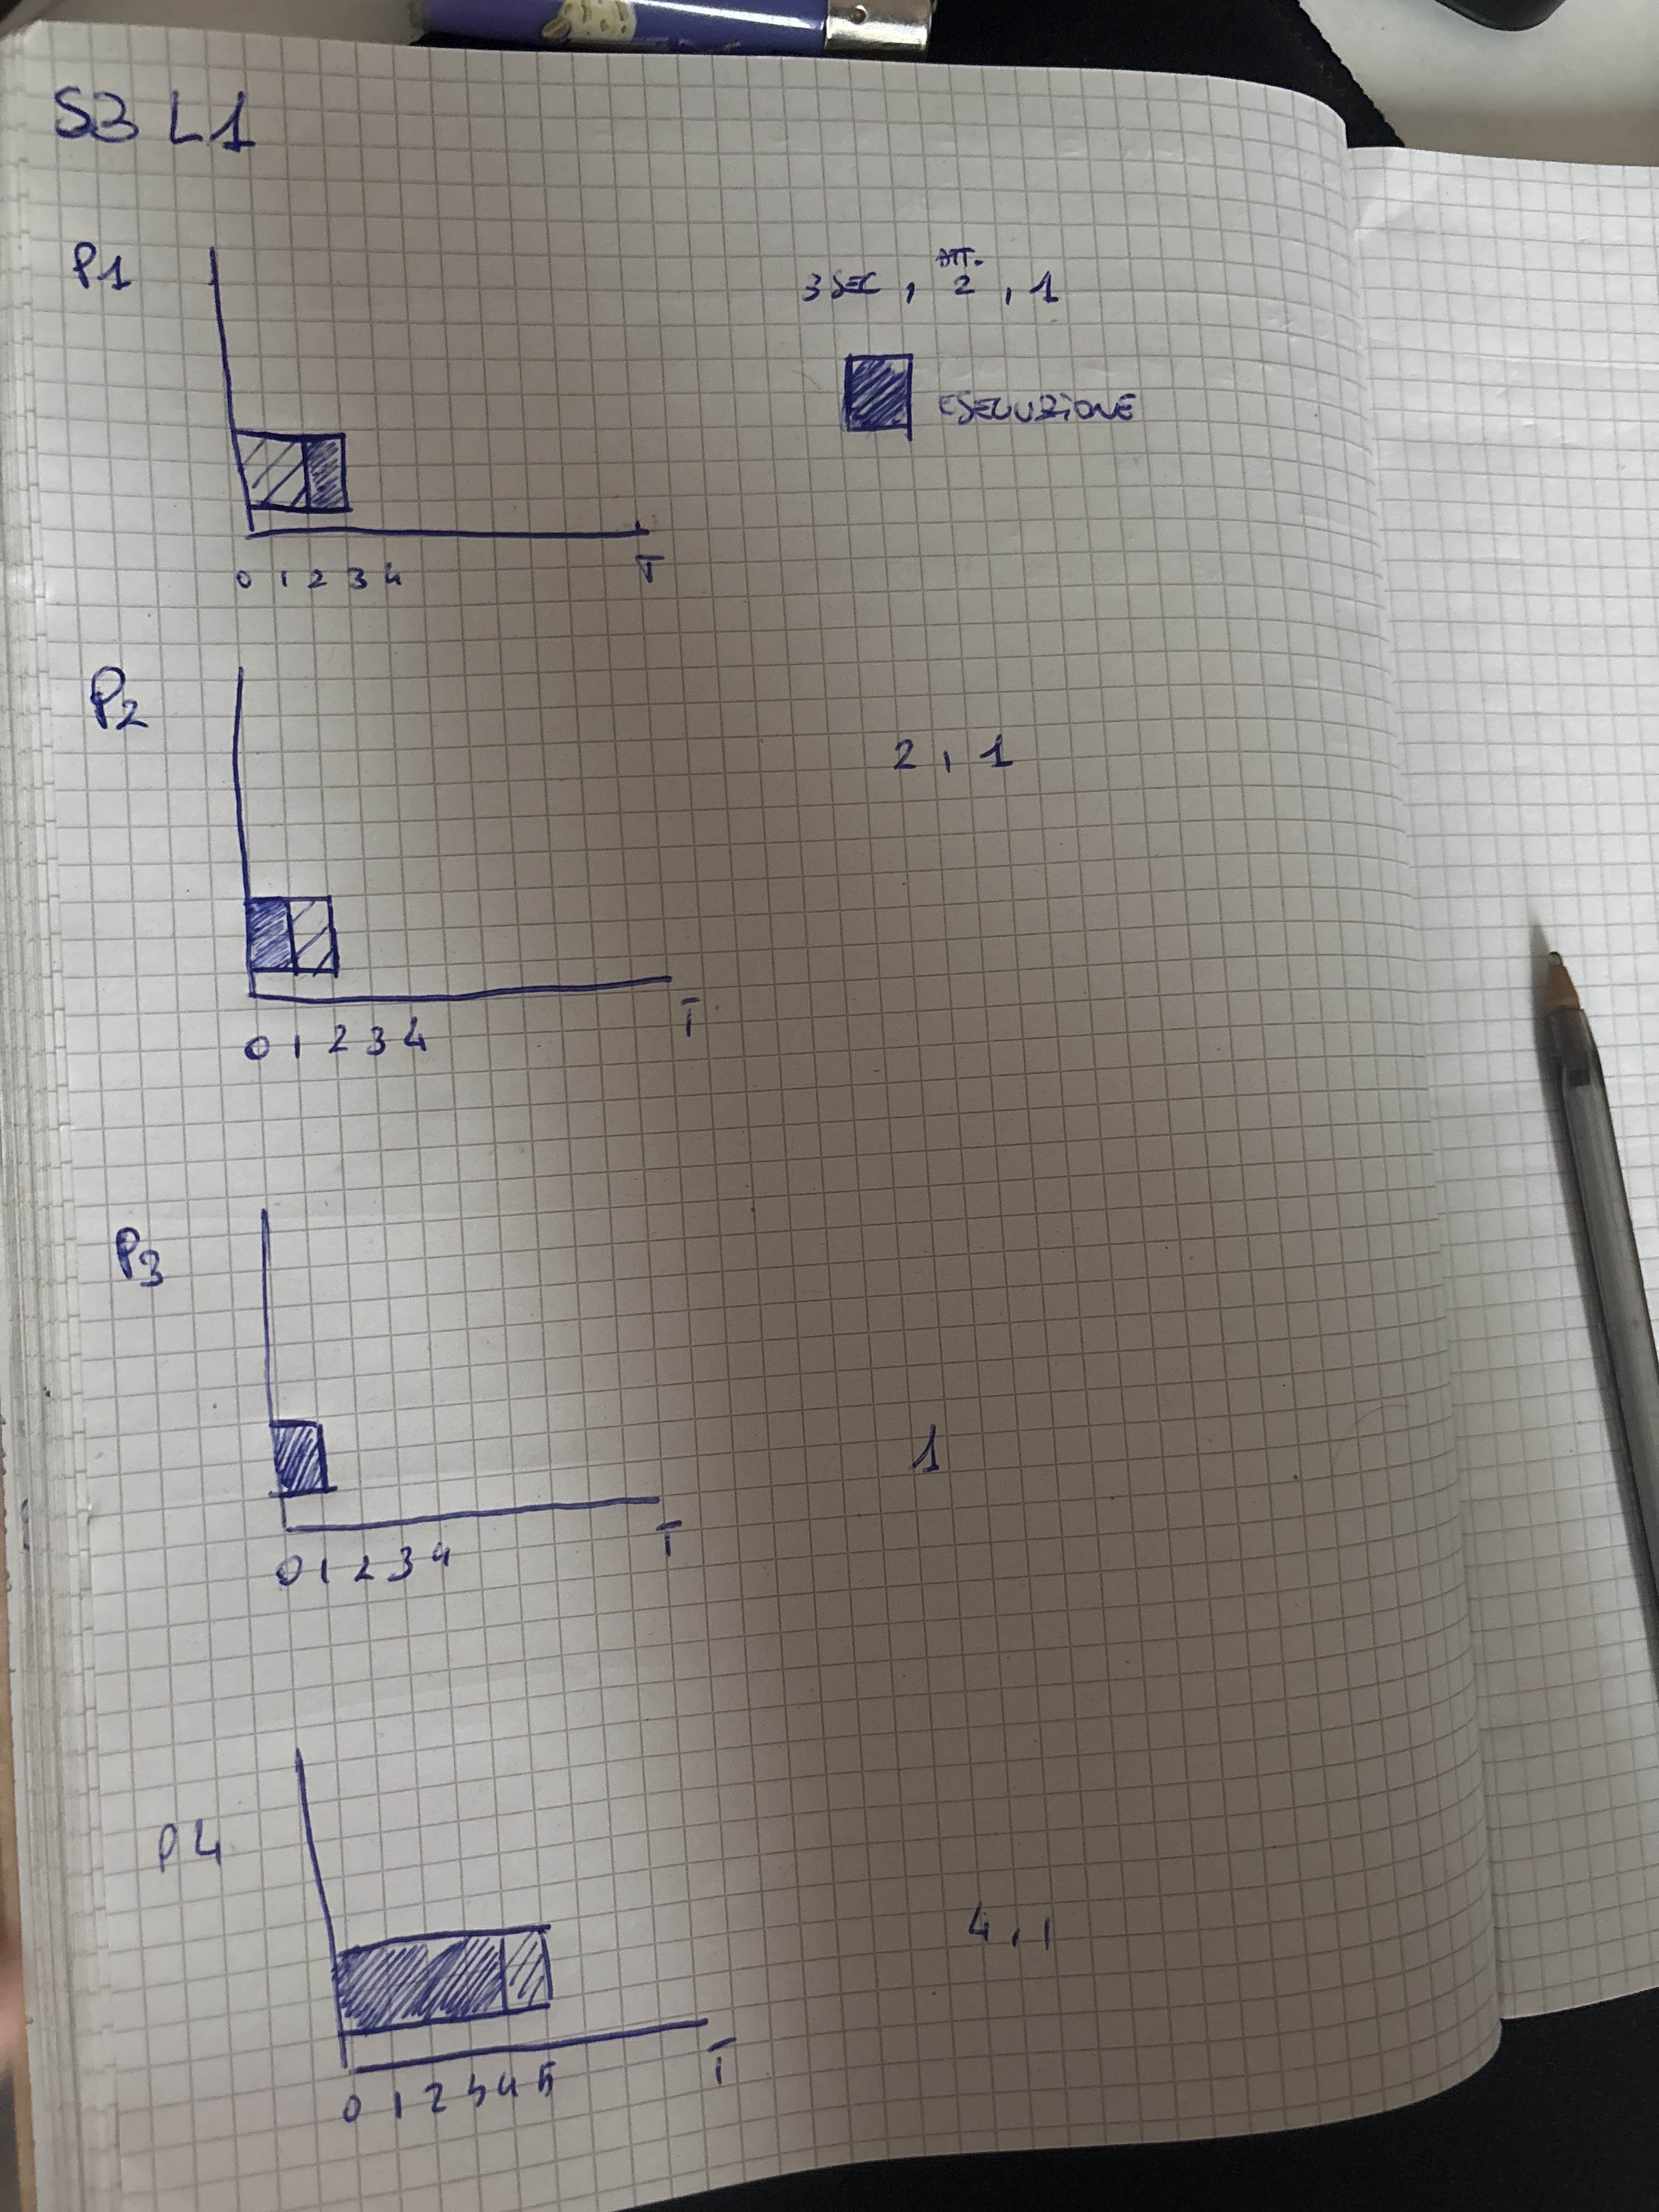 S3 L1
P1
3 SEC , ATT. 2 , 1
ESECUZIONE
0 1 2 3 4 T
P2
2 , 1
0 1 2 3 4 T
P3
1
0 1 2 3 4 T
P4
4 , 1
0 1 2 3 4 5 T